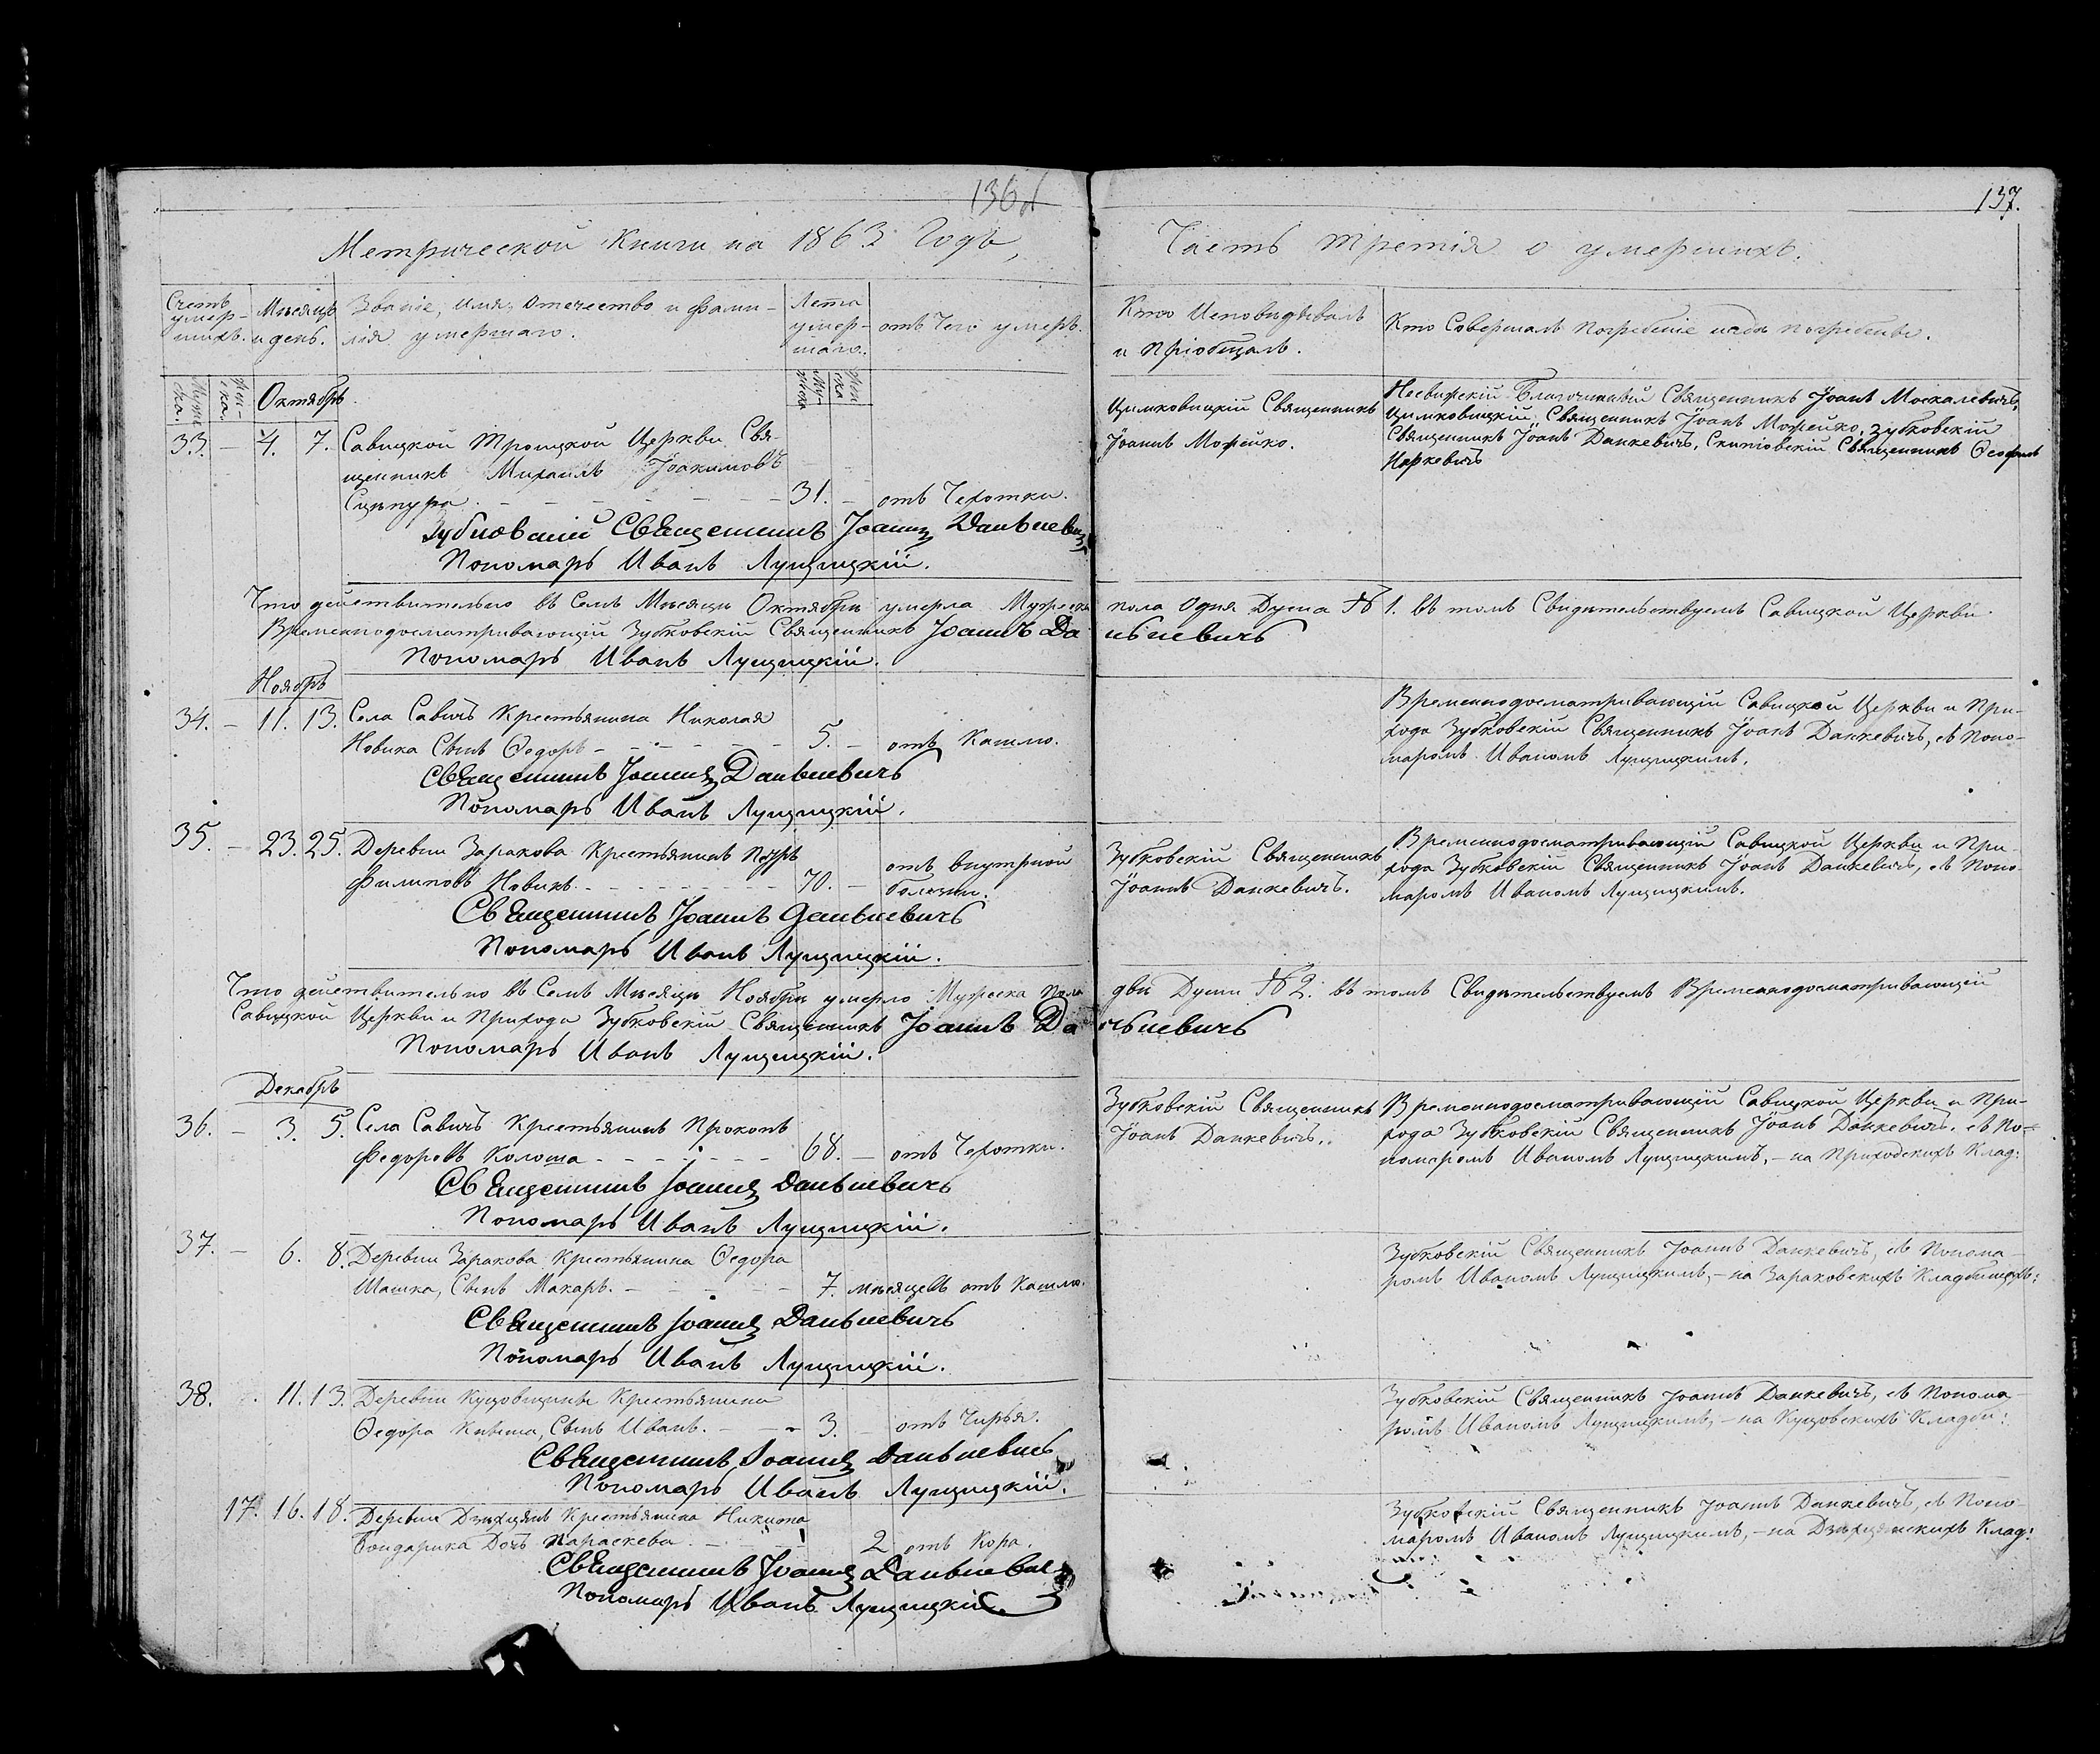 136
137.
Метрической Книги на 1863 Годъ,
Часть Третія о умершихъ.
Счетъ умер- шихъ.
Мѣсяцъ и день.
Званіе, имя, отечество и фами-
лія умершаго.
Лета умер- шаго.
отъ Чего умеръ.
Кто Исповѣдывалъ
и Пріобщалъ.
Кто Совершалъ Погребеніе и гдѣ погребены.
Муже- ска.
Жен- ска.
Октябрь.
Му- жеска
Жен- ска
33. – 4. 7. Савицкой Троицкой Церкви Свя-
щенникъ Михаилъ Іоакимовъ
Сцепура 31. – отъ Чехотки.
Зубковскій Священникъ Іоаннъ Данькевичъ
Пономарь Иванъ Лущицкій.
Цимковицкій Священникъ
Іоаннъ Можейко.
Несвижскій Благочинный Священникъ Іоаннъ Москалевичъ,
Цимковицкій Священникъ Іоаннъ Можейко, Зубковскій
Священникъ Іоаннъ Данкевичъ, Священникъ Ѳеофилъ
Наркевичъ
Что действительно въ Семъ Мѣсяцѣ Октябрѣ умерла Мужеска пола Одна Душа № 1. въ томъ Свидѣтельствуемъ Савицкой Церкви
Временнодосматривающій Зубковскій Священникъ Іоаннъ Данькевичъ
Пономарь Иванъ Лущицкій.
Ноябрь
34. – 11. 13. Села Савичъ Крестьянина Николая
Новика Сынъ Ѳедоръ 5. – отъ Кашлю.
Священникъ Іоаннъ Данькевичъ
Пономарь Иванъ Лущицкій.
Временнодосматривающій Савицкой Церкви и При-
хода Зубковскій Священникъ Іоаннъ Данкевичъ, съ Поно-
маромъ Иваномъ Лущицкимъ.
35. – 23. 25. Деревни Заракова Крестьянинъ Петръ
Филиповъ Новикъ. 70. – отъ внутрной болезни.
Священникъ Іоаннъ Данькевичъ
Пономарь Иванъ Лущицкій.
Зубковскій Священникъ
Іоаннъ Данкевичъ.
Временнодосматривающій Савицкой Церкви и При-
хода Зубковскій Священникъ Іоаннъ Данкевичъ, съ Поно-
маромъ Иваномъ Лущицкимъ.
Что действительно въ Семъ Мѣсяцѣ Ноябрѣ умерло Мужеска пола две Души № 2. въ томъ Свидѣтельствуемъ Временнодосматривающій
Савицкой Церкви и Прихода Зубковскій Священникъ Іоаннъ Данькевичъ
Пономарь Иванъ Лущицкій.
Декабрь
36. – 3. 5. Села Савичъ Крестьянинъ Прокопъ
Федоровъ Колоша 68. – отъ Чехотки.
Священникъ Іоаннъ Данькевичъ
Пономарь Иванъ Лущицкій.
Зубковскій Священникъ
Іоаннъ Данкевичъ.
Временнодосматривающій Савицкой Церкви и При-
хода Зубковскій Священникъ Іоаннъ Данкевичъ, съ По-
номаромъ Иваномъ Лущицкимъ, – на Приходскихъ Клад:
37. – 6. 8. Деревни Заракова Крестьянина Ѳедора
Шашка, Сынъ Макаръ. 7. мѣсяцевъ отъ Кашлю.
Священникъ Іоаннъ Данькевичъ
Пономарь Иванъ Лущицкій.
Зубковскій Священникъ Іоаннъ Данкевичъ, съ Понома-
ромъ Иваномъ Лущицкимъ, – на Зараковскихъ Кладбищахъ:
38. 11. 13. Деревни Куцовщины Крестьянина
Ѳедора Сынъ Иванъ. – 3. отъ Чирья.
Священникъ Іоаннъ Данькевичъ
Пономарь Иванъ Лущицкій.
Зубковскій Священникъ Іоаннъ Данкевичъ, съ Понома-
ромъ Иваномъ Лущицкимъ, – на Куцовскихъ Кладби:
17. 16. 18. Деревни Крестьянина Никиты
Бондарика Дочь Параскева 2 отъ Кора.
Священникъ Іоаннъ Данькевичъ
Пономарь Иванъ Лущицкій
Зубковскій Священникъ Іоаннъ Данкевичъ, съ Поно-
маромъ Иваномъ Лущицкимъ, – на Клад: